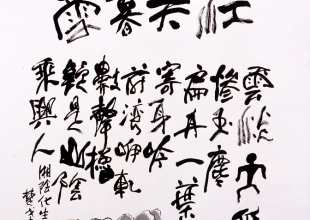 江天暮雪
雲淡天低
糝玉塵
扁舟一葉
寄身吟
前灣咿軋
數聲櫓
疑是山陰
乘興人
湘陰化生